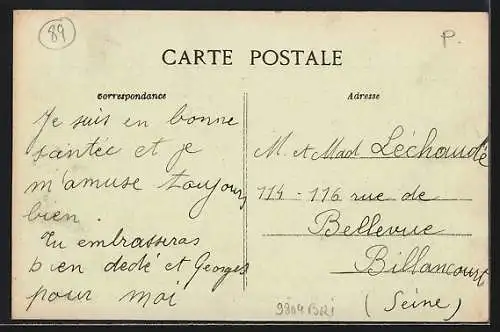 89
P.
CARTE POSTALE
Correspondance
Adresse
Je suis en bonne
santée et je
m'amuse toujours
bien.
Tu embrasseras
bien dedé et Georges
pour moi
M. et Mad Léchaudé
114 - 116 rue de
Bellevue
Billancourt
(Seine)